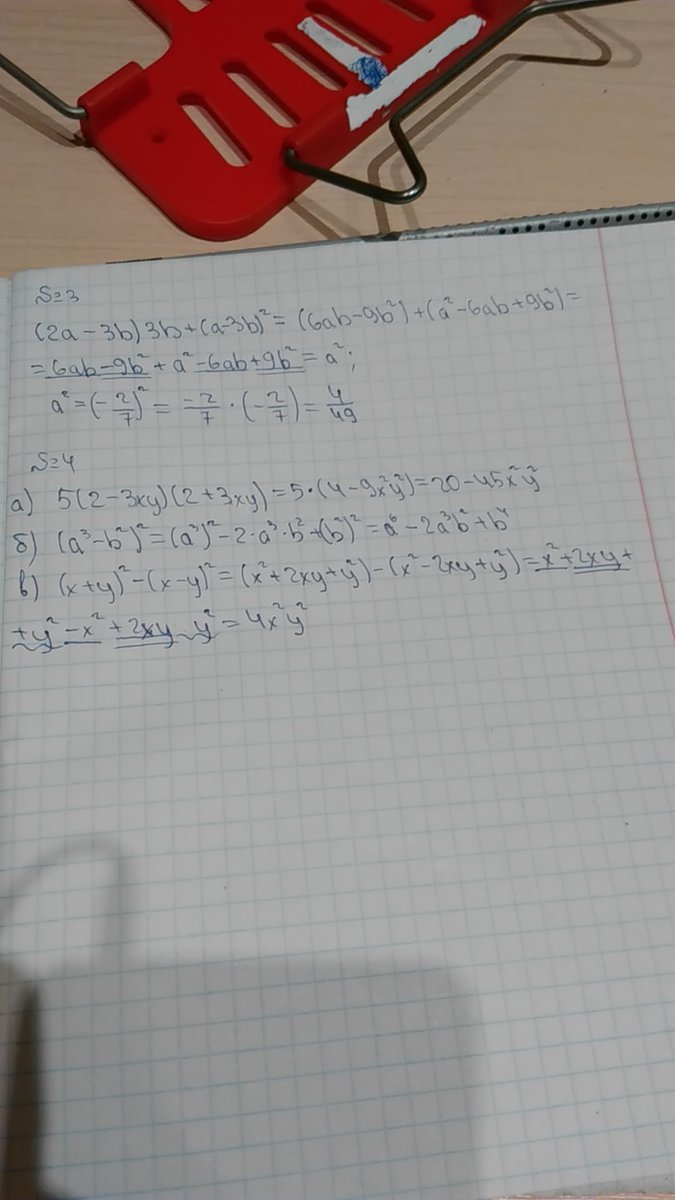 №3
(2a-3b)3b+(a-3b)²=(6ab-9b²)+(a²-6ab+9b²)=
=6ab-9b²+a²-6ab+9b²=a²;
a²=(-2/7)²=-2/7·(-2/7)=4/49
№4
а) 5(2-3xy)(2+3xy)=5·(4-9x²y²)=20-45x²y²
б) (a³-b²)²=(a³)²-2·a³·b²+(b²)²=a⁶-2a³b²+b⁴
в) (x+y)²-(x-y)²=(x²+2xy+y²)-(x²-2xy+y²)=x²+2xy+
+y²-x²+2xy-y²=4x²y²